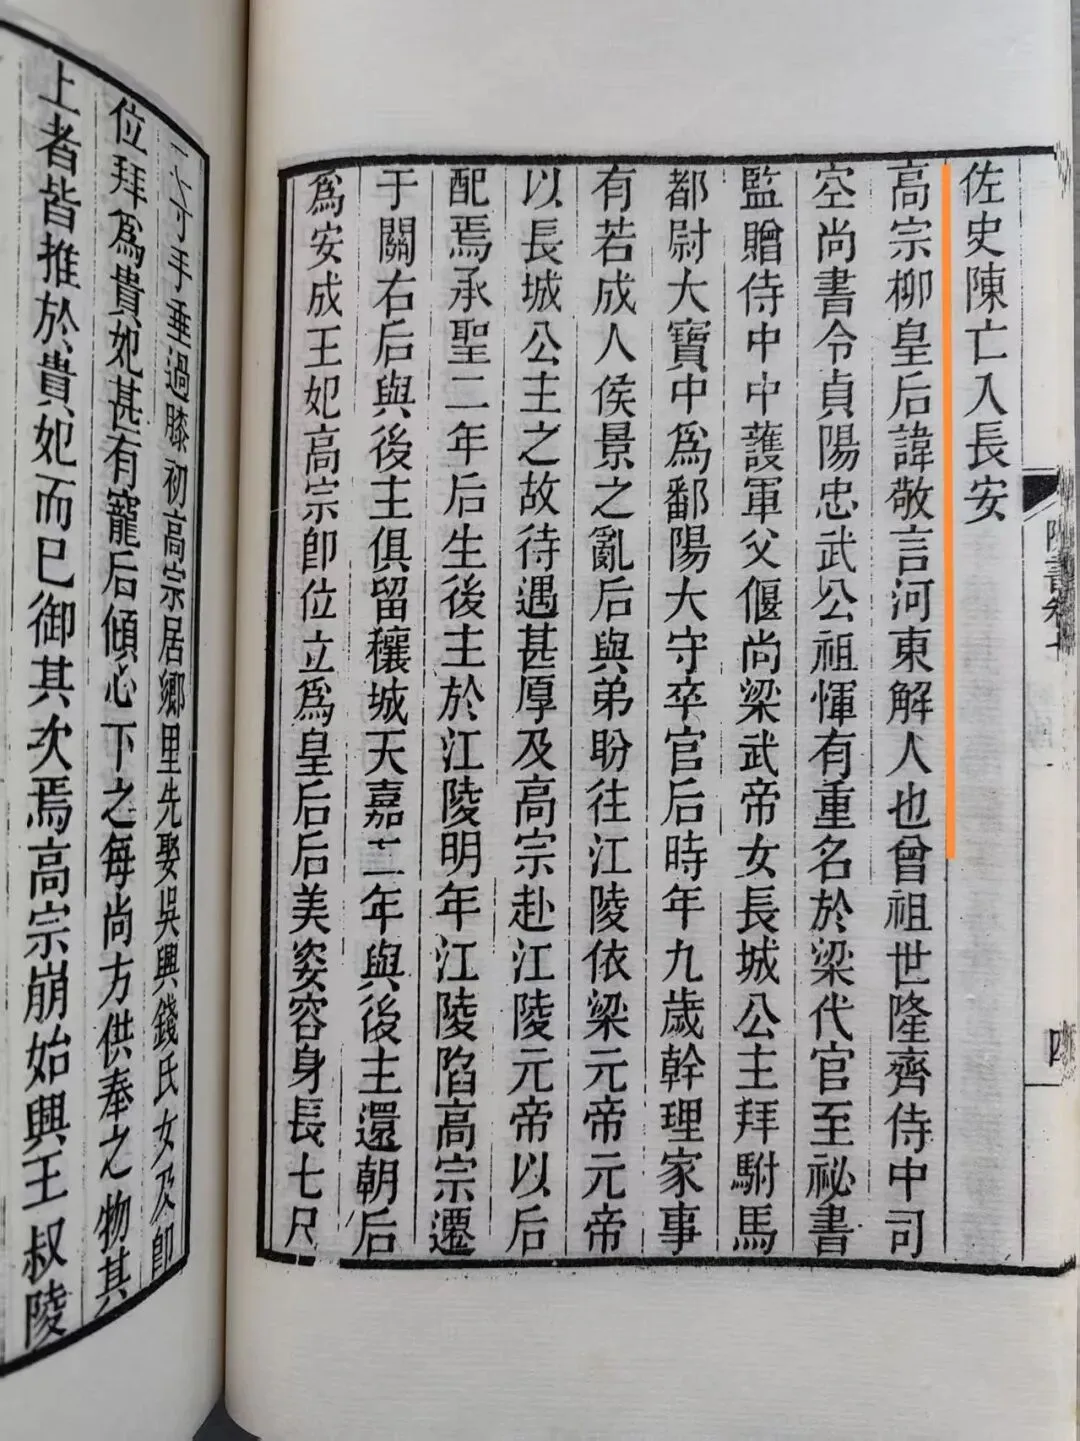 佐史陳亡入長安
高宗柳皇后諱敬言河東解人也曾祖世隆齊侍中司
空尚書令貞陽忠武公祖惲有重名於梁代官至祕書
監贈侍中中護軍父偃尚梁武帝女長城公主拜駙馬
都尉大寶中爲鄱陽大守卒官后時年九歲幹理家事
有若成人侯景之亂后與弟盼往江陵依梁元帝元帝
以長城公主之故待遇甚厚及高宗赴江陵元帝以后
配焉承聖二年后生後主於江陵明年江陵陷高宗遷
于關右后與後主俱留穰城天嘉二年與後主還朝后
爲安成王妃高宗卽位立爲皇后后美姿容身長七尺
二寸手垂過膝初高宗居鄉里先娶吳興錢氏女及卽
位拜爲貴妃甚有寵后傾心下之每尚方供奉之物其
上者皆推於貴妃而已御其次焉高宗崩始興王叔陵
陳書卷七
四